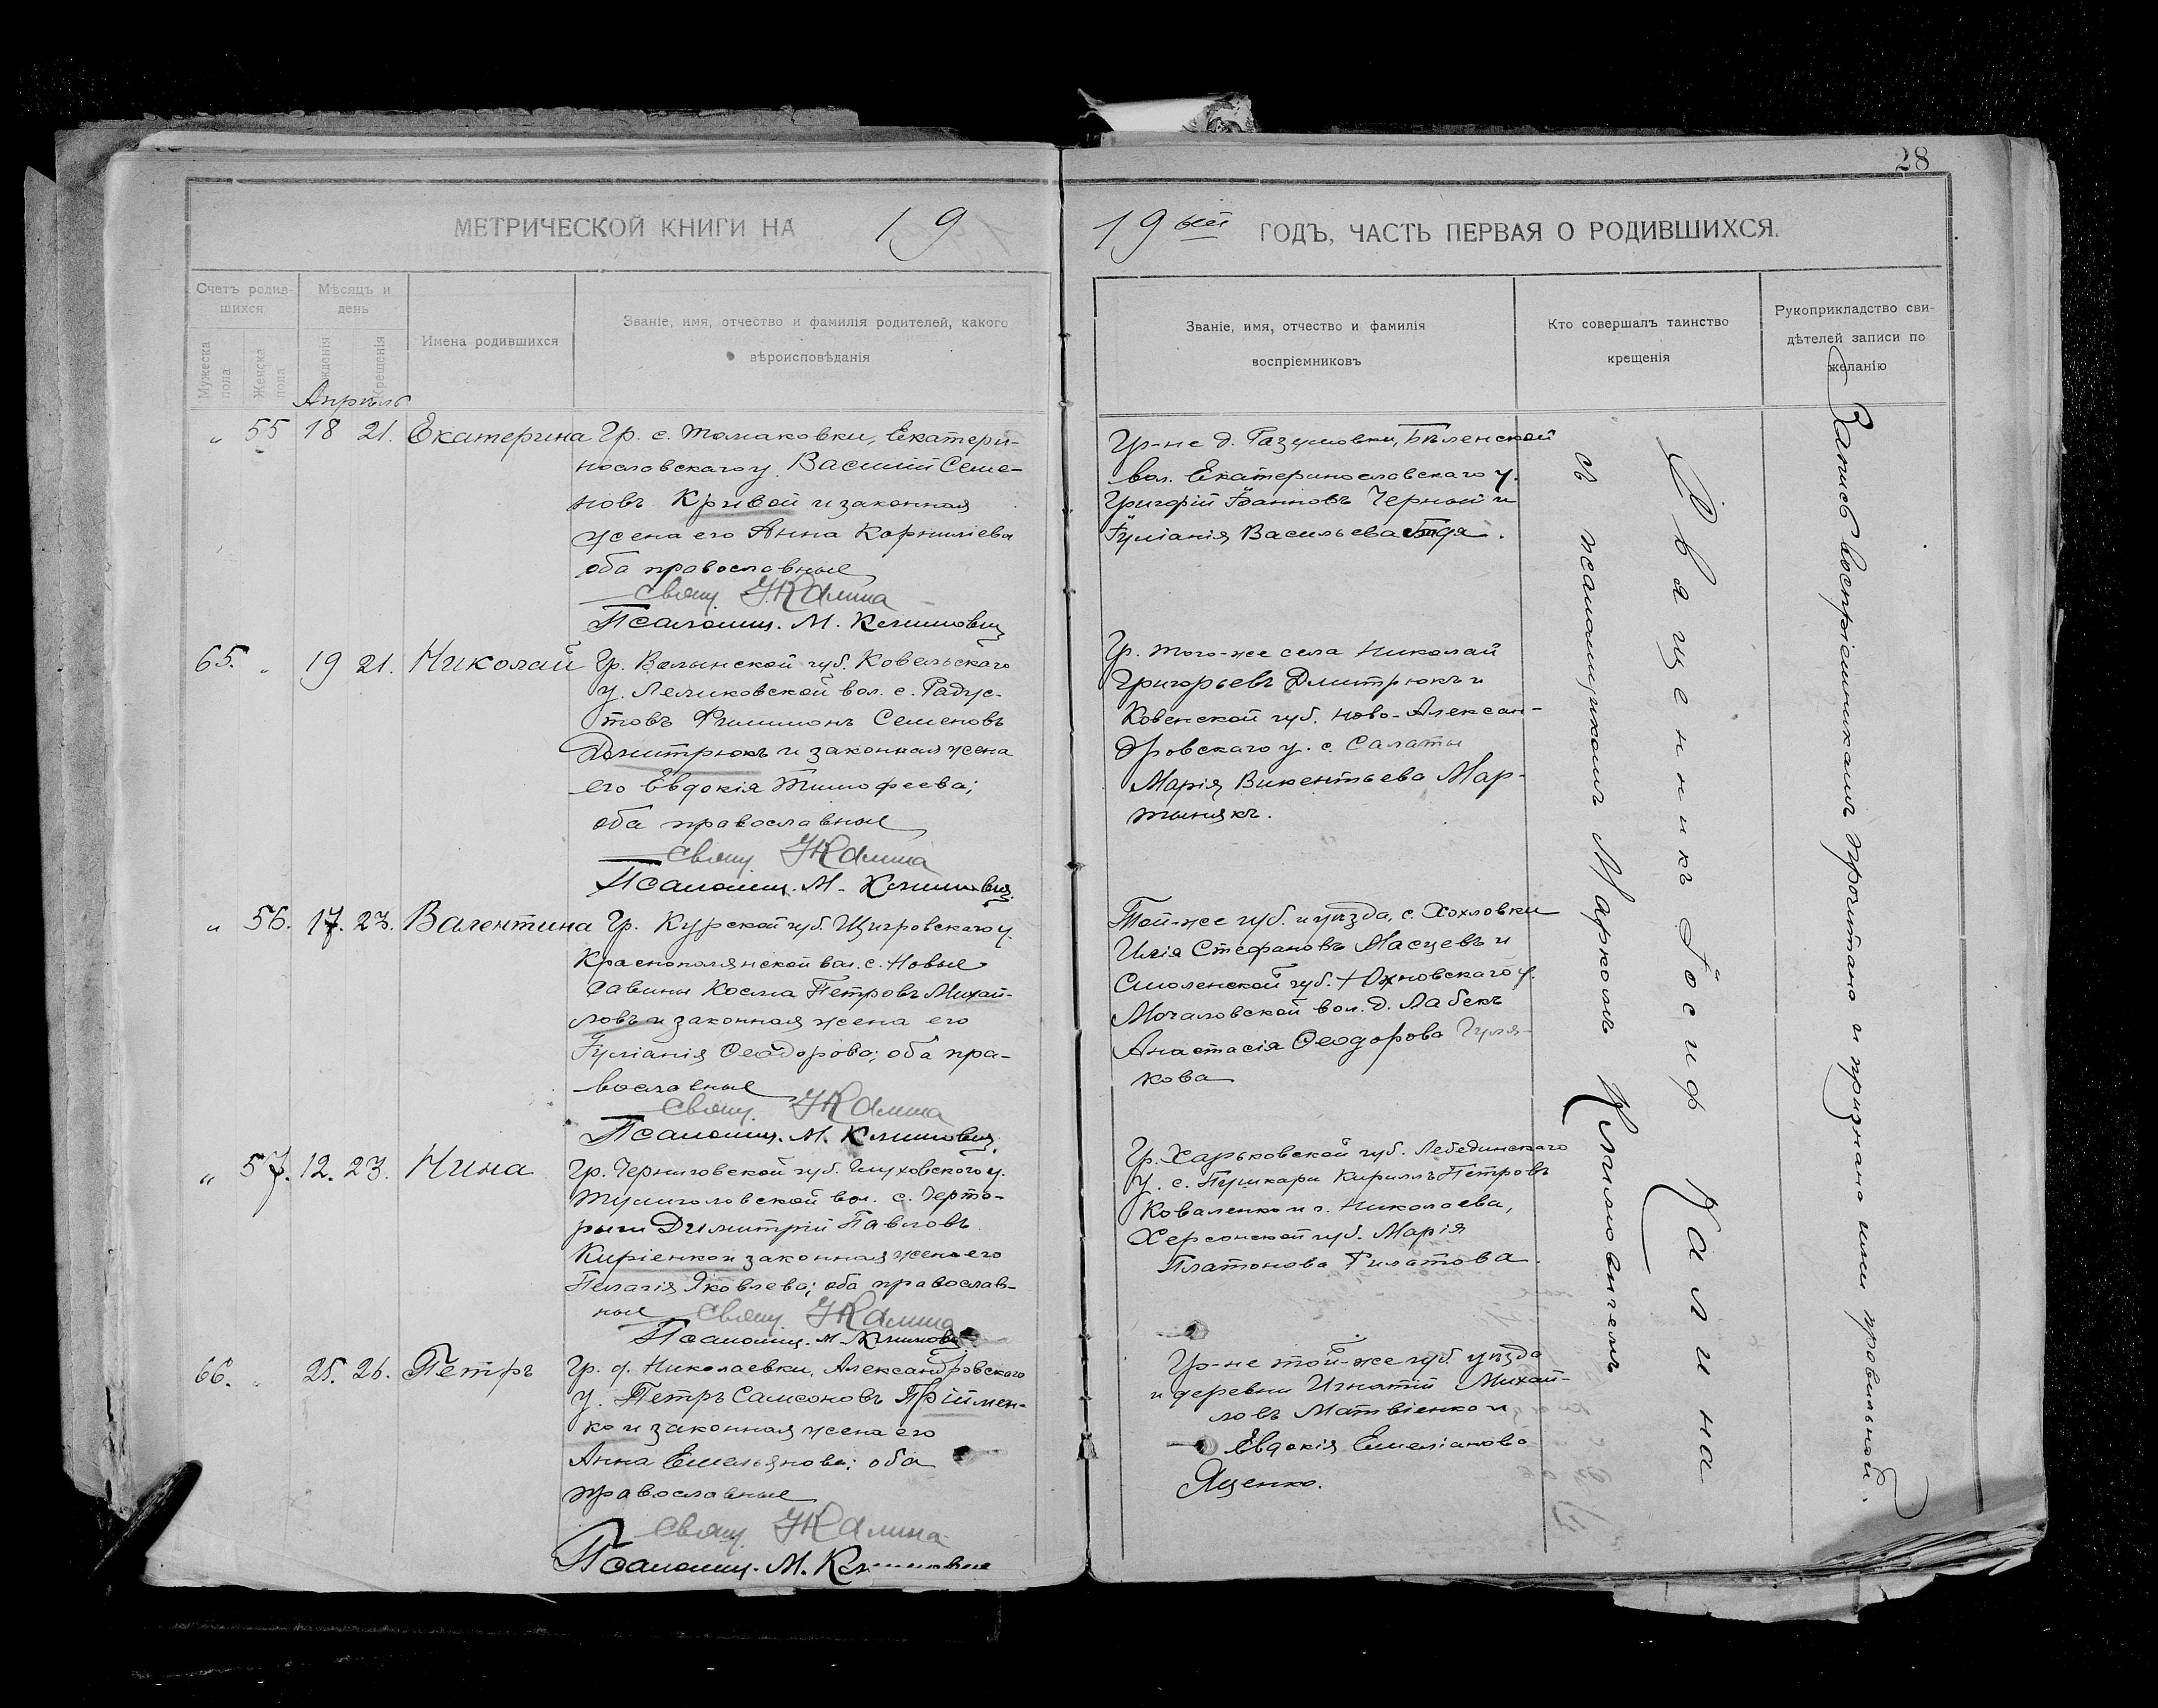 28
МЕТРИЧЕСКОЙ КНИГИ НА 19
19ый ГОДЪ, ЧАСТЬ ПЕРВАЯ О РОДИВШИХСЯ.
Счетъ родив-
шихся
Мужеска
пола
Женска
пола
Мѣсяцъ и
день
рожденія
Крещенія
Имена родившихся
Званіе, имя, отчество и фамилія родителей, какого
вѣроисповѣданія
Званіе, имя, отчество и фамилія
воспріемниковъ
Кто совершалъ таинство
крещенія
Рукоприкладство сви-
дѣтелей записи по
желанію
Апрѣль
„ 55 18 21. Екатерина
Гр. с. Томаковки, Екатери-
нославскаго у. Василій Семе-
новъ Кривой и законная
жена его Анна Корниліева
оба православные
Свящ. І. Калина
Псаломщ. М. Климович
Гр-не д. Разумовки, Бѣленской
вол. Екатеринославскаго у.
Григорій Іоанновъ Черный и
Іуліанія Васильева
65. „ 19 21. Николай
Гр. Волынской губ. Ковельскаго
у. вол. с. Радус-
товъ Филимонъ Семеновъ
Дмитрюкъ и законная жена
его Евдокія Тимофеева;
оба православные
Свящ. І. Калина
Псаломщ. М. Климович
Гр. того-же села Николай
Григорьевъ Дмитрюкъ и
Ковенской губ. Ново-Алексан-
дровскаго у. с. Салаты
Марія Викентьева Мар-
тынякъ.
„ 56. 17. 23. Валентина
Гр. Курской губ. Щигровскаго у.
Краснополянской вол. с. Новые
Савины Косма Петровъ Михай-
ловъ и законная жена его
Іуліанія Ѳеодорова; оба пра-
вославные
Свящ. І. Калина
Псаломщ. М. Климович
Той-же губ. и уѣзда, с. Хохловки
Илія Стефановъ Масцевъ и
Смоленской губ. Юхновскаго у.
Мочаловской вол. д. Лабекъ
Анастасія Ѳеодорова Гуля-
кова
„ 57. 12. 23. Нина
Гр. Черниговской губ. Глуховского у.
Тулиголовской вол. с. Черто-
рыги Димитрій Павловъ
Киріенко и законная жена его
Пелагія Яковлева; оба православ-
ные Свящ. І. Калина
Псаломщ. М. Климович
Гр. Харьковской губ. Лебединскаго
у. с. Пушкари Кириллъ Петровъ
Коваленко и г. Николаева,
Херсонской губ. Марія
Платонова Филатова.
66. „ 25. 26. Петръ
Гр. д. Николаевки, Александровского
у. Петръ Самсоновъ Пріймен-
ко и законная жена его
Анна Емельянова; оба
православные
Свящ. І. Калина
Псаломщ. М. Климович
Гр-не той-же губ. уѣзда
и деревни Игнатій Михай-
ловъ Матвіенко и
Евдокія Емеліанова
Яценко.
Священникъ Іосифъ Калина
съ псаломщикомъ Маркомъ Климовичемъ
Запись воспріемникамъ прочитано и признано ими правильной.